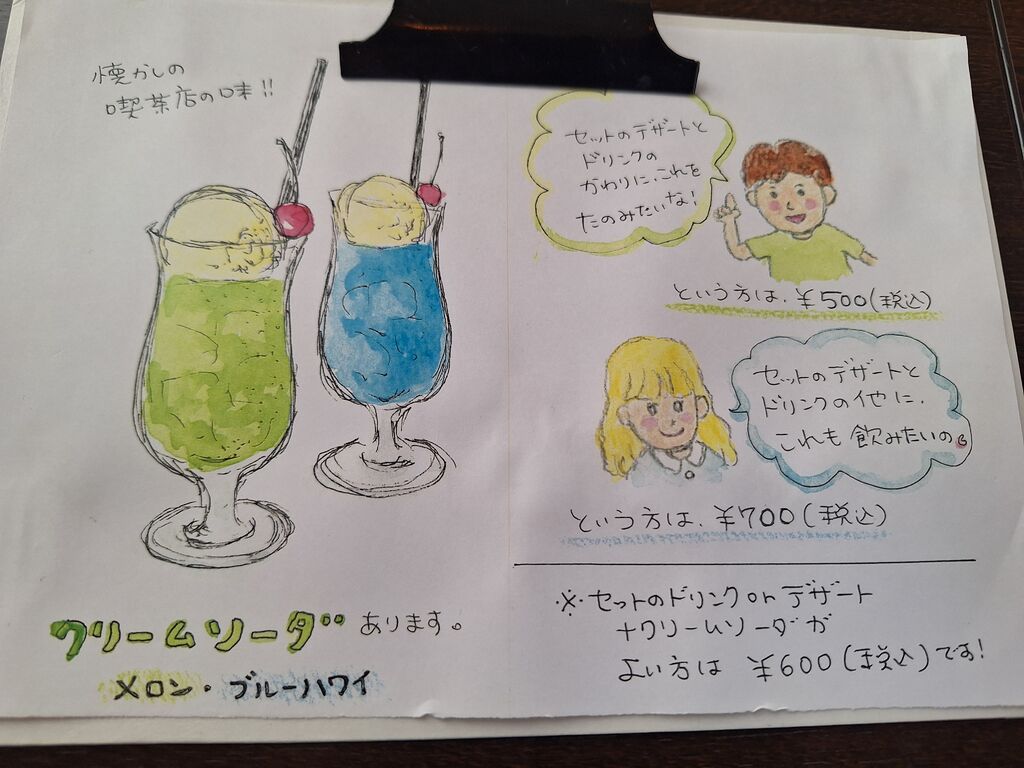 懐かしの
喫茶店の味!!
クリームソーダ あります。
メロン・ブルーハワイ
セットのデザートと
ドリンクの
かわりに、これを
たのみたいな!
という方は、¥500(税込)
セットのデザートと
ドリンクの他に、
これも飲みたいの。
という方は、¥700(税込)
※セットのドリンクorデザート
+クリームソーダが
よい方は ¥600(税込)です!